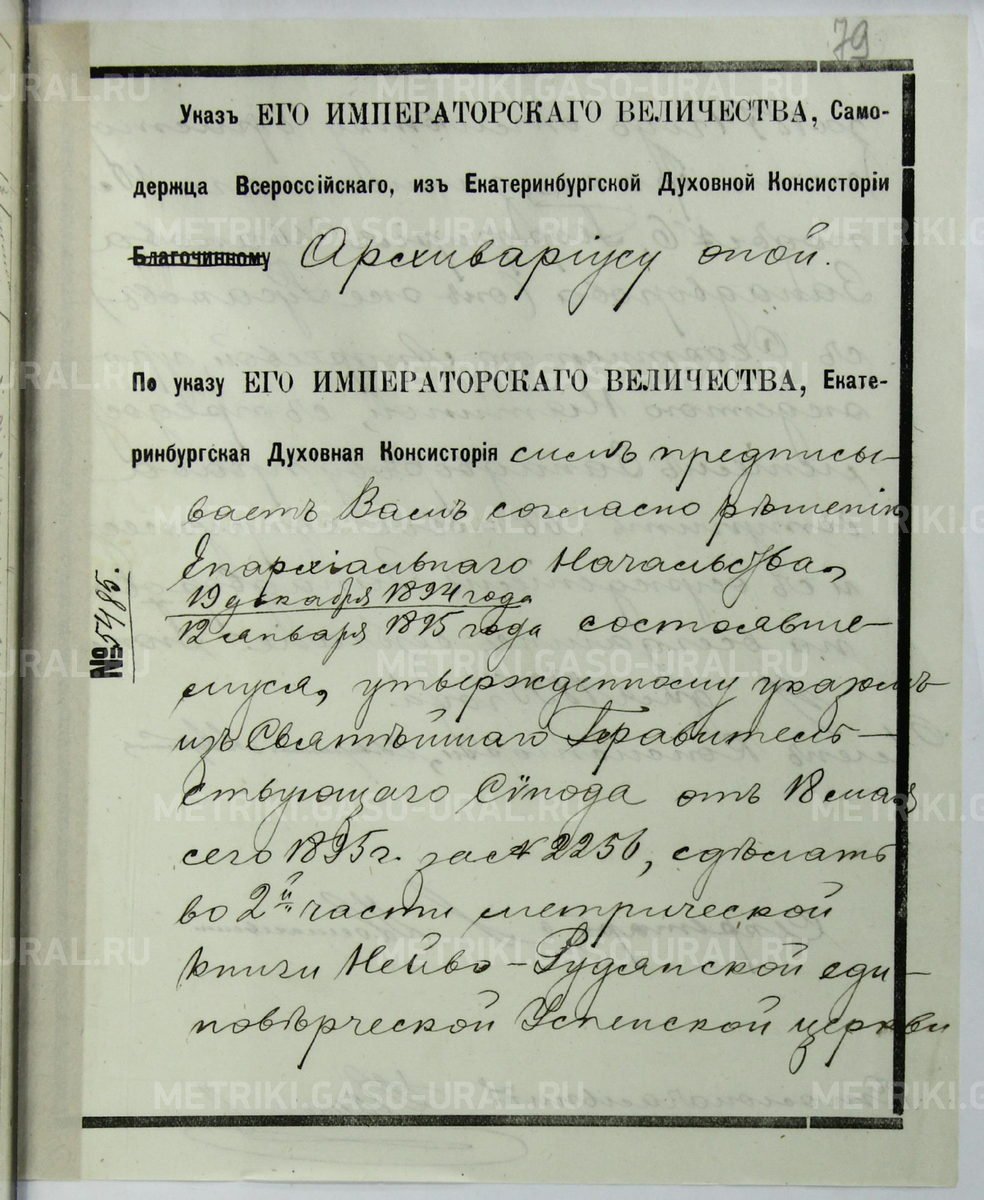 79
Указъ ЕГО ИМПЕРАТОРСКАГО ВЕЛИЧЕСТВА, Само-
держца Всероссійскаго, изъ Екатеринбургской Духовной Консисторіи
Благочинному Архиваріусу оной.
По указу ЕГО ИМПЕРАТОРСКАГО ВЕЛИЧЕСТВА, Екате-
ринбургская Духовная Консисторія симъ предписы-
ваетъ Вамъ согласно рѣшенію
Епархіальнаго Начальства,
19 декабря 1894 года
12 января 1895 года состоявше-
муся, утвержденному указомъ
изъ Святѣйшаго Правитель-
ствующаго Сѵнода отъ 18 мая
сего 1895 г. за № 2256, сдѣлать
во 2й части метрической
книги Нейво-Рудянской еди-
новѣрческой Успенской церкви
№5498.
METRIKI.GASO-URAL.RU